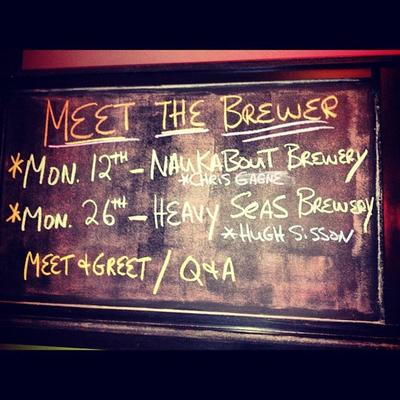 MEET THE BREWER
*MON. 12TH - NAUKABOUT BREWERY
*CHRIS GAGNE
*MON. 26TH - HEAVY SEAS BREWERY
*HUGH SISSON
MEET & GREET / Q&A